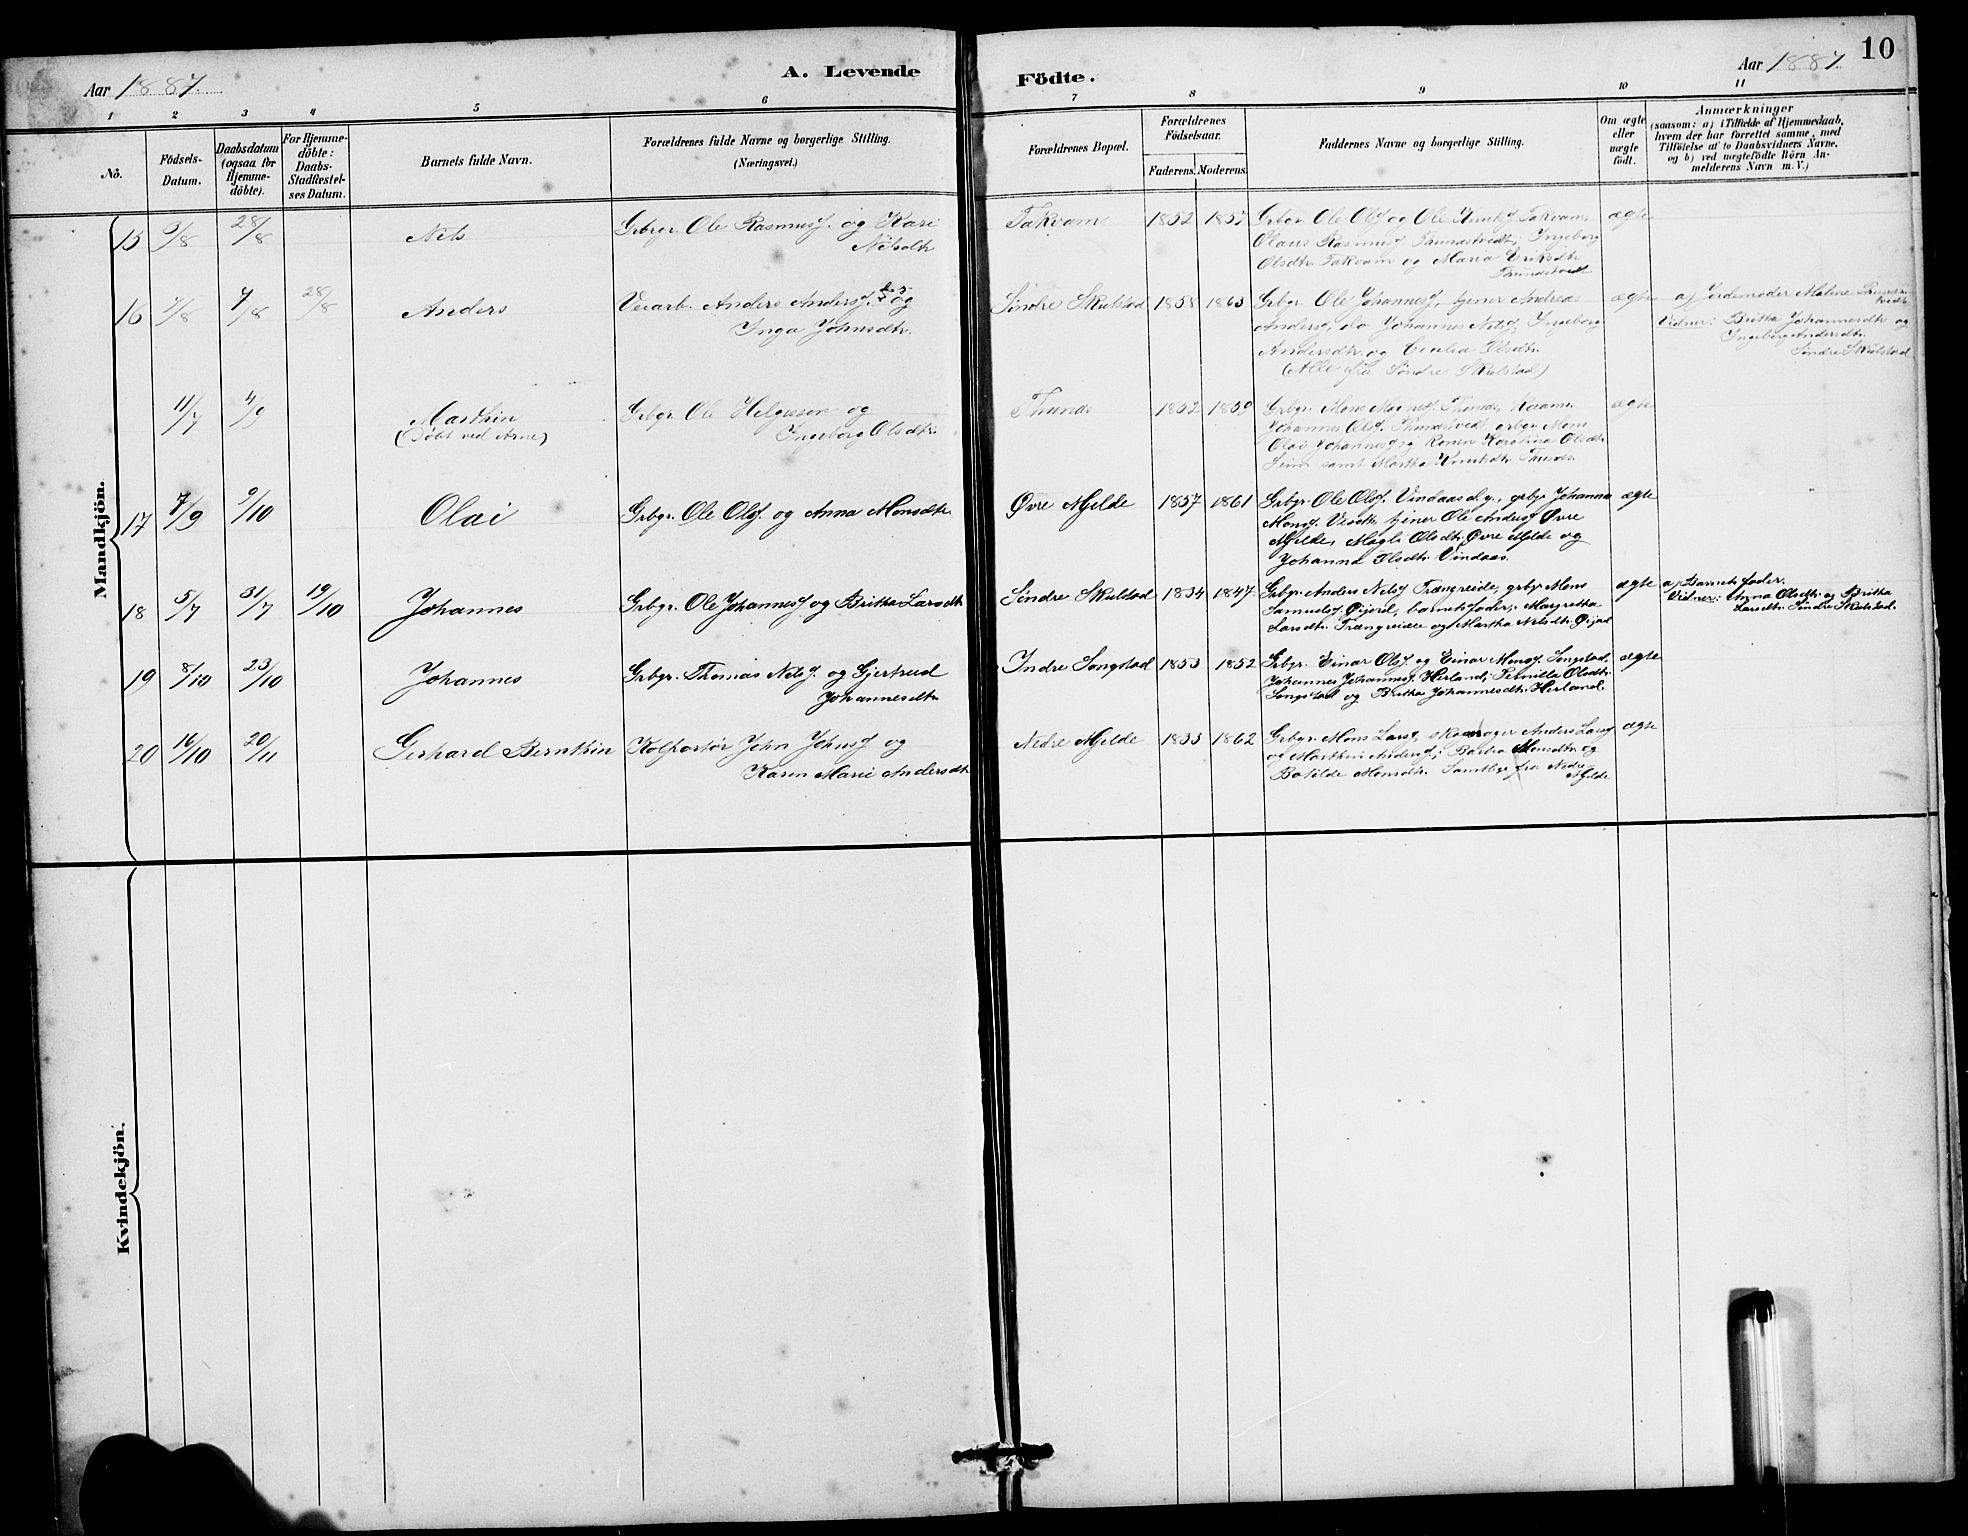 10
A. Levende Födte.
Aar 1887.
Aar 1887.
1 2 3 4 5 6 7 8 9 10 11
No.
Födsels-
Datum.
Daabsdatum
(ogsaa for
Hjemme-
döbte).
For Hjemme-
döbte:
Daabs-
Stadfæstel-
ses Datum.
Barnets fulde Navn.
Forældrenes fulde Navne og borgerlige Stilling.
(Næringsvei.)
Forældrenes Bopæl.
Forældrenes
Födselsaar.
Faderens. Moderens.
Faddernes Navne og borgerlige Stilling.
Om ægte
eller
uægte
født.
Anmærkninger
(saasom: a) i Tilfælde af Hjemmedaab,
hvem der har forrettet samme, med
Tilföielse af to Daabsvidners Navne.
og b) ved uægtefödte Börn An-
melderens Navn m. V.)
Mandkjön.
15 3/8 28/8 Nils
Grbgr. Ole Rasmuss. og Kari
Nilsdtr
Takvam 1852 1857
Grbgr. Ole Olss. og Ole Knuts. Takvam,
Olaus Rasmuss. Thunestvedt; Ingeborg
Olsdtr. Takvam og Maria Eriksdtr.
Thunestvedt
ægte
16 7/8 28/8 Anders
Veiarb. Anders Anderss. og
Inga Johnsdtr.
Söndre Skulstad 1858 1863
Grbgr. Ole Johanness., tjener Andreas
Anderss, do Johannes Nilss, Ingeborg
Andersdtr. og Cecilia Olsdtr.
(Alle fra Söndre Skulstad)
ægte
a) Jordemoder Malene
Vidner: Britha Johannesdtr og
Ingeborg Andersdtr.
Söndre Skulstad
11/7 4/9 Marthin
(Döbt ved Arne)
Grbgr. Ole Helgesen og
Ingeborg Olsdtr.
Thunæs 1852 1859
Grbgr. Mons Thunæs,
Johannes Olss. Thunestvedt, grbgr. Mons
Olai Johanness og Konen Karolina Olsdtr.
Seim samt Martha Knutsdtr. Thunæs
ægte
17 7/9 9/10 Olai
Grbgr. Ole Olss. og Anna Monsdtr.
Øvre Mjelde 1857 1861
Grbgr. Ole Olss. Vindaas d.y., grbgr. Johannes
Monss. Vesete, tjener Ole Anderss Øvre
Mjelde, Magli Olsdtr. Øvre Mjelde og
Johanna Olsdtr. Vindaas.
ægte
18 5/7 31/7 19/10 Johannes
Grbgr. Ole Johanness og Britha Larsdtr
Söndre Skulstad 1834 1847
Grbgr. Anders Nilss Trængreide, grbgr. Mons
Samuelss. Øijord, barnets fader; Margretha
Larsdtr. Trængreide og Martha Nilsdtr. Øijord
ægte
a) Barnets fader.
Vidner: Anna Olsdtr. og Britha
Larsdtr. Söndre Skulstad.
19 8/10 23/10 Johannes
Grbgr. Thomas Nilss og Gjertrud
Johannesdtr.
Indre Songstad 1853 1852
Grbgr. Einar Olss. og Einar Monss. Songstad,
Johannes Johanness. Herland; Pernille Olsdtr.
Songstad og Britha Johannesdtr. Herland.
ægte
20 16/10 20/11 Gerhard Bernthin
Kolportør John Johnss og
Karen Marie Andersdtr.
Nedre Mjelde 1833 1862
Grbgr. Mons Larss, skomager Anders Larss
og Marthin Anderss; Barbra Monsdtr. og
Botilde Monsdtr. Samtlige fra Nedre
Mjelde
ægte
Kvindekjön.